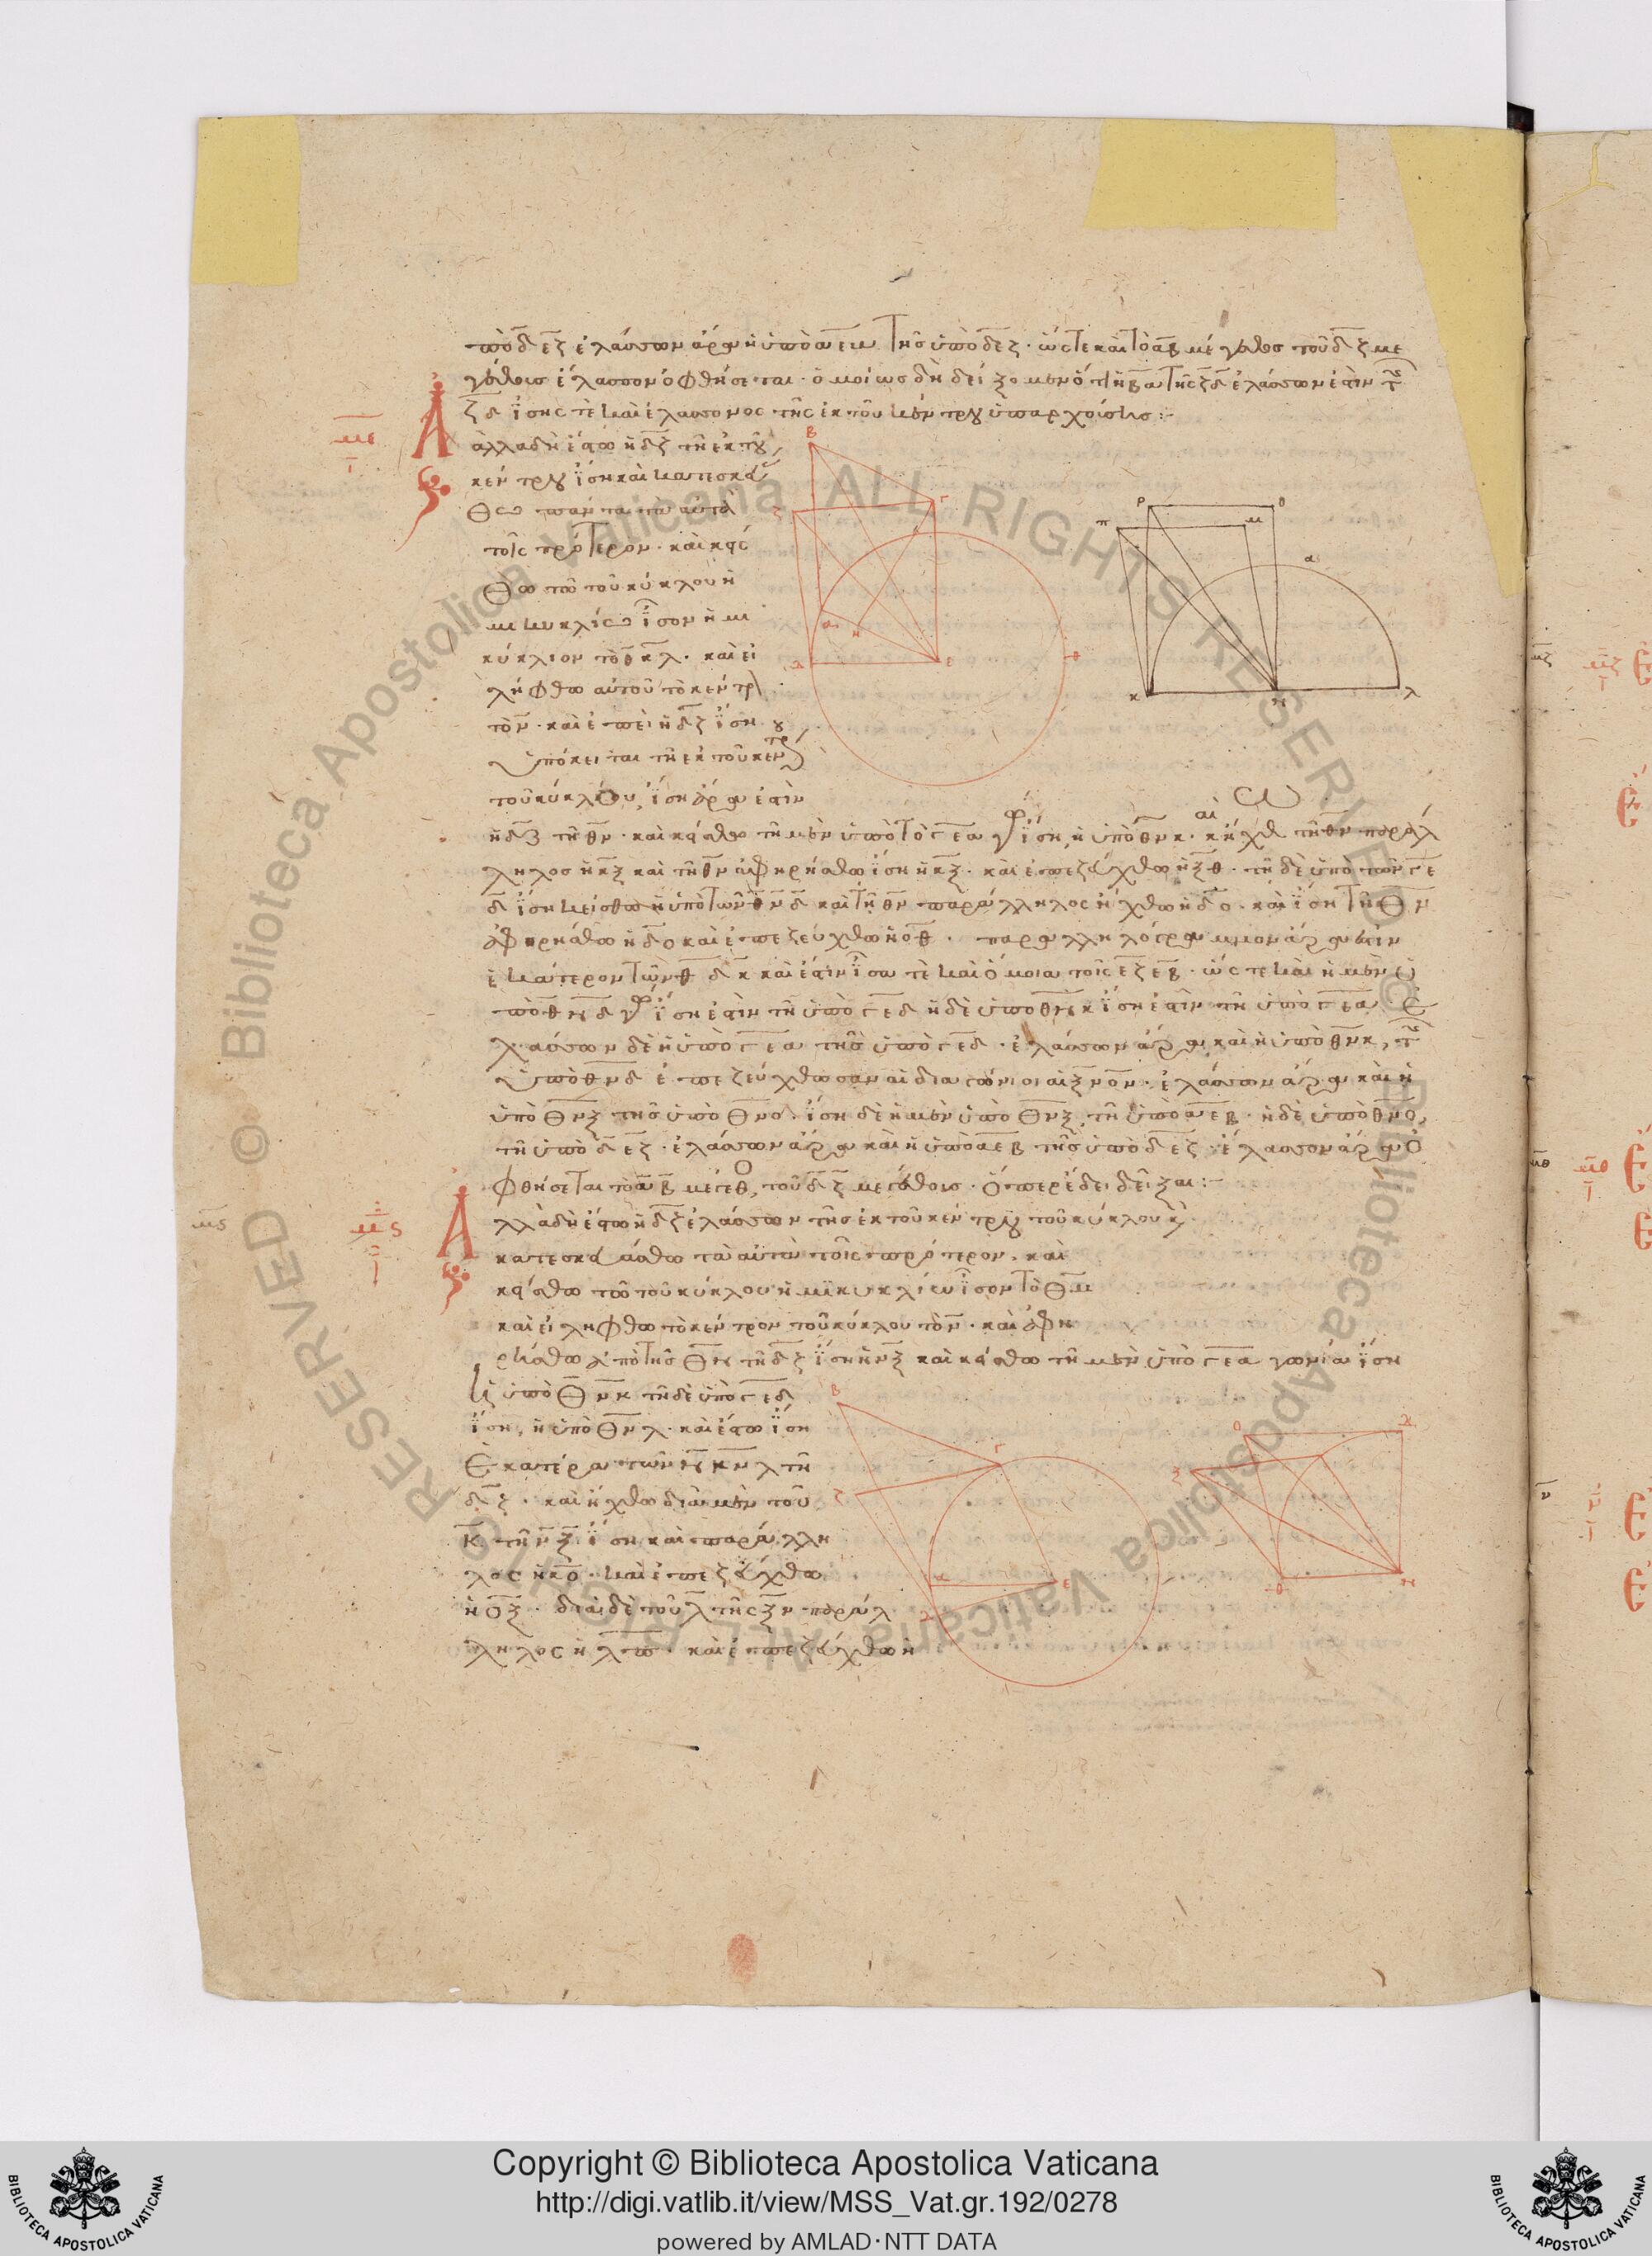 πὸ δεζ ἐλάσσων ἄρα ἡ ὑπὸ αεω τῆς ὑπὸ δεζ · ὥστε καὶ τὸ αβ μέγεθος τοῦ δζ με
γέθους ἔλασσον ὀφθήσεται · ὁμοίως δὴ δείξομεν ὅτι ἡ βα τῆς ζδ ἐλάσσων ἐστὶν τῆς
ζδ ἴσης τὲ καὶ ἐλάσσονος τῆς ἐκ τοῦ κέντρου ὑπαρχούσης :-
με
ἀλλὰ δὴ ἔστω ἡ δζ τῇ ἐκ τοῦ
κέντρου ἴση καὶ κατεσκευά
σθω πάντα τὰ αὐτὰ
τοῖς πρότερον · καὶ κεί
σθω τῷ τοῦ κύκλου ἡ
μικυκλίῳ ἴσον ἡμι
κύκλιον τὸ θκλ · καὶ εἰ
λήφθω αὐτοῦ τὸ κέντρ
τὸ ν · καὶ ἐπεὶ ἡ δζ ἴση
ὑπόκειται τῇ ἐκ τοῦ κεν
τοῦ κύκλου, ἴση ἄρα ἐστὶν
ἡ δζ τῇ θν · καὶ κείσθω τῇ μὲν ὑπὸ τὸ γεα ἴση, ἡ ὑπὸ θνκ · καὶ ἤχθω τῇ θν παράλ
ληλος ἡ κξ καὶ τῇ θν ἀφῃρήσθω ἴση ἡ κξ · καὶ ἐπεζεύχθω ἡ ξθ · τῇ δὲ ὑπὸ τῶν γε
δ ἴση κείσθω ἡ ὑπὸ τῶν θνδ καὶ τῇ θν παράλληλος ἤχθω ἡ δο · καὶ ἴση τῇ θν
ἀφῃρήσθω ἡ δο καὶ ἐπεζεύχθω ἡ οθ · παραλληλόγραμμον ἄρα ἐστὶν
ἑκάτερον τῶν θδκ καὶ ἐστὶν ἴσα τὲ καὶ ὅμοια τοῖς εζεβ · ὥστε καὶ ἡ μὲν ὑ
πὸ θνδ ἴση ἐστὶν τῇ ὑπὸ γεδ ἡ δὲ ὑπὸ θνκ ἴση ἐστὶν τῇ ὑπὸ γεα · ἐ
λάσσων δὲ ἡ ὑπὸ γεα τῆς ὑπὸ γεδ · ἐλάσσων ἄρα καὶ ἡ ὑπὸ θνκ, τῆς
ὑπὸ θνδ ἐπεζεύχθωσαν αἱ διαγώνιοι αἱ ξνον · ἐλάσσων ἄρα καὶ ἡ
ὑπὸ θνξ τῆς ὑπὸ θνο · ἴση δὲ ἡ μὲν ὑπὸ θνξ τῇ ὑπὸ αεβ · ἡ δὲ ὑπὸ θνο,
τῇ ὑπὸ δεζ · ἐλάσσων ἄρα καὶ ἡ ὑπὸ αεβ τῆς ὑπὸ δεζ · ἔλασσον ἄρα ὀ
φθήσεται τὸ αβ μέγεθος, τοῦ δζ μεγέθους · ὅπερ ἔδει δεῖξαι :-
μς
μς
Ἀλλὰ δὴ ἔστω ἡ δζ ἐλάσσων τῆς ἐκ τοῦ κέντρου τοῦ κύκλου καὶ
κατεσκευάσθω τὰ αὐτὰ τοῖς πρότερον · καὶ
κείσθω τῷ τοῦ κύκλου ἡμικυκλίῳ ἴσον τὸ θμ
καὶ εἰλήφθω τὸ κέντρον τοῦ κύκλου τὸ ν · καὶ ἀφῃ
ρήσθω ἀπὸ τῆς θν τῇ δζ ἴση ἡ νξ καὶ κείσθω τῇ μὲν ὑπὸ γεα γωνίᾳ ἴση
ἡ ὑπὸ θνκ τῇ δὲ ὑπὸ γεδ
ἴση, ἡ ὑπὸ θνλ · καὶ ἔστω ἴση
ἑκατέρα τῶν κνλ τῇ
δζ · καὶ ἤχθω διὰ μὲν τοῦ
κ τῇ νξ ἴση καὶ παράλλη
λος ἡ κο · καὶ ἐπεζεύχθω
ἡ οξ · διὰ δὲ τοῦ λ τῆς ξν παράλ
ληλος ἡ λπ · καὶ ἐπεζεύχθω ἡ
Copyright © Biblioteca Apostolica Vaticana
http://digi.vatlib.it/view/MSS_Vat.gr.192/0278
powered by AMLAD·NTT DATA